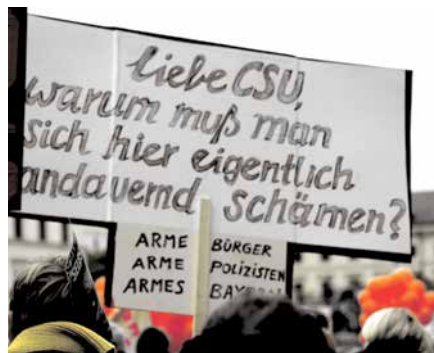 liebe CSU,
warum muß man
sich hier eigentlich
andauernd schämen?
ARME BÜRGER
ARME POLIZISTEN
ARMES